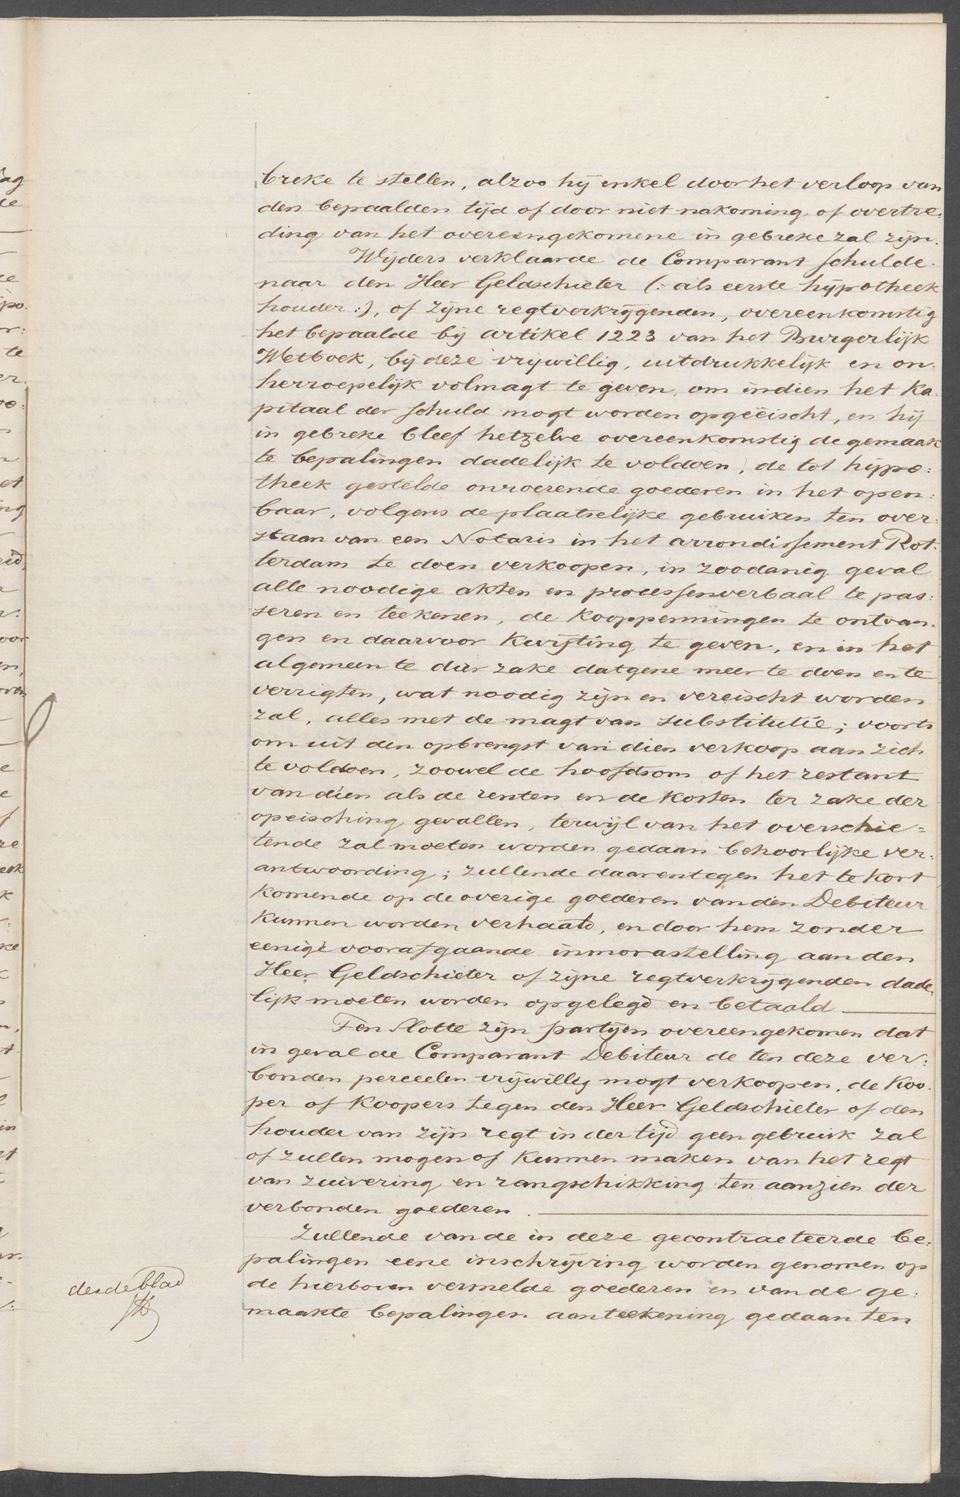 breke te stellen, alzoo hij enkel door het verloop van
den bepaalden tijd of door niet nakoming of overtre-
ding van het overeengekomene in gebreke zal zijn.
Wijders verklaarde de Comparant schulde-
naar den Heer Geldschieter (: als eerste hijpotheek
houder :), of zijne regtverkrijgenden, overeenkomstig
het bepaalde bij artikel 1223 van het Burgerlijk
Wetboek, bij deze vrijwillig, uitdrukkelijk en on-
herroepelijk volmagt te geven, om indien het Ka-
pitaal der schuld mogt worden opgeëischt, en hij
in gebreke bleef hetzelve overeenkomstig de gemaak
te bepalingen dadelijk te voldoen, de tot hijpo:
theek gestelde onroerende goederen in het open:
baar, volgens de plaatselijke gebruiken ten over-
staan van een Notaris in het arrondissement Rot-
terdam te doen verkoopen, in zoodanig geval
alle noodige akten en processenverbaal te pas:
seren en teekenen, de Kooppenningen te ontvan-
gen en daarvoor Kwijting te geven, en in het
algemeen te dier zake datgene meer te doen en te
verrigten, wat noodig zijn en vereischt worden
zal, alles met de magt van substitutie; voorts
om uit den opbrengst van dien verkoop aan zich
te voldoen, zoowel de hoofdsom of het restant
van dien als de renten en de Kosten ter zake der
opeisching gevallen, terwijl van het overschie=
tende zal moeten worden gedaan behoorlijke ver-
antwoording; zullende daarentegen het te Kort
Komende op de overige goederen van den Debiteur
Kunnen worden verhaald, en door hem zonder
eenige voorafgaande inmorastelling aan den
Heer Geldschieter of zijne regtverkrijgenden dade-
lijk moeten worden opgelegd en betaald
Ten slotte zijn partijen overeengekomen dat
in geval de Comparant Debiteur de ten deze ver:
bonden perceelen vrijwillig mogt verkoopen, de Koo-
per of Koopers tegen den Heer Geldschieter of den
houder van zijn regt in der tijd geen gebruik zal
of zullen mogen of Kunnen maken van het regt
van zuivering en rangschikking ten aanzien der
verbonden goederen.
Zullende van de in deze gecontracteerde be-
palingen eene inschrijving worden genomen op
de hierboven vermelde goederen en van de ge:
maakte bepalingen aanteekening gedaan ten
derde blad